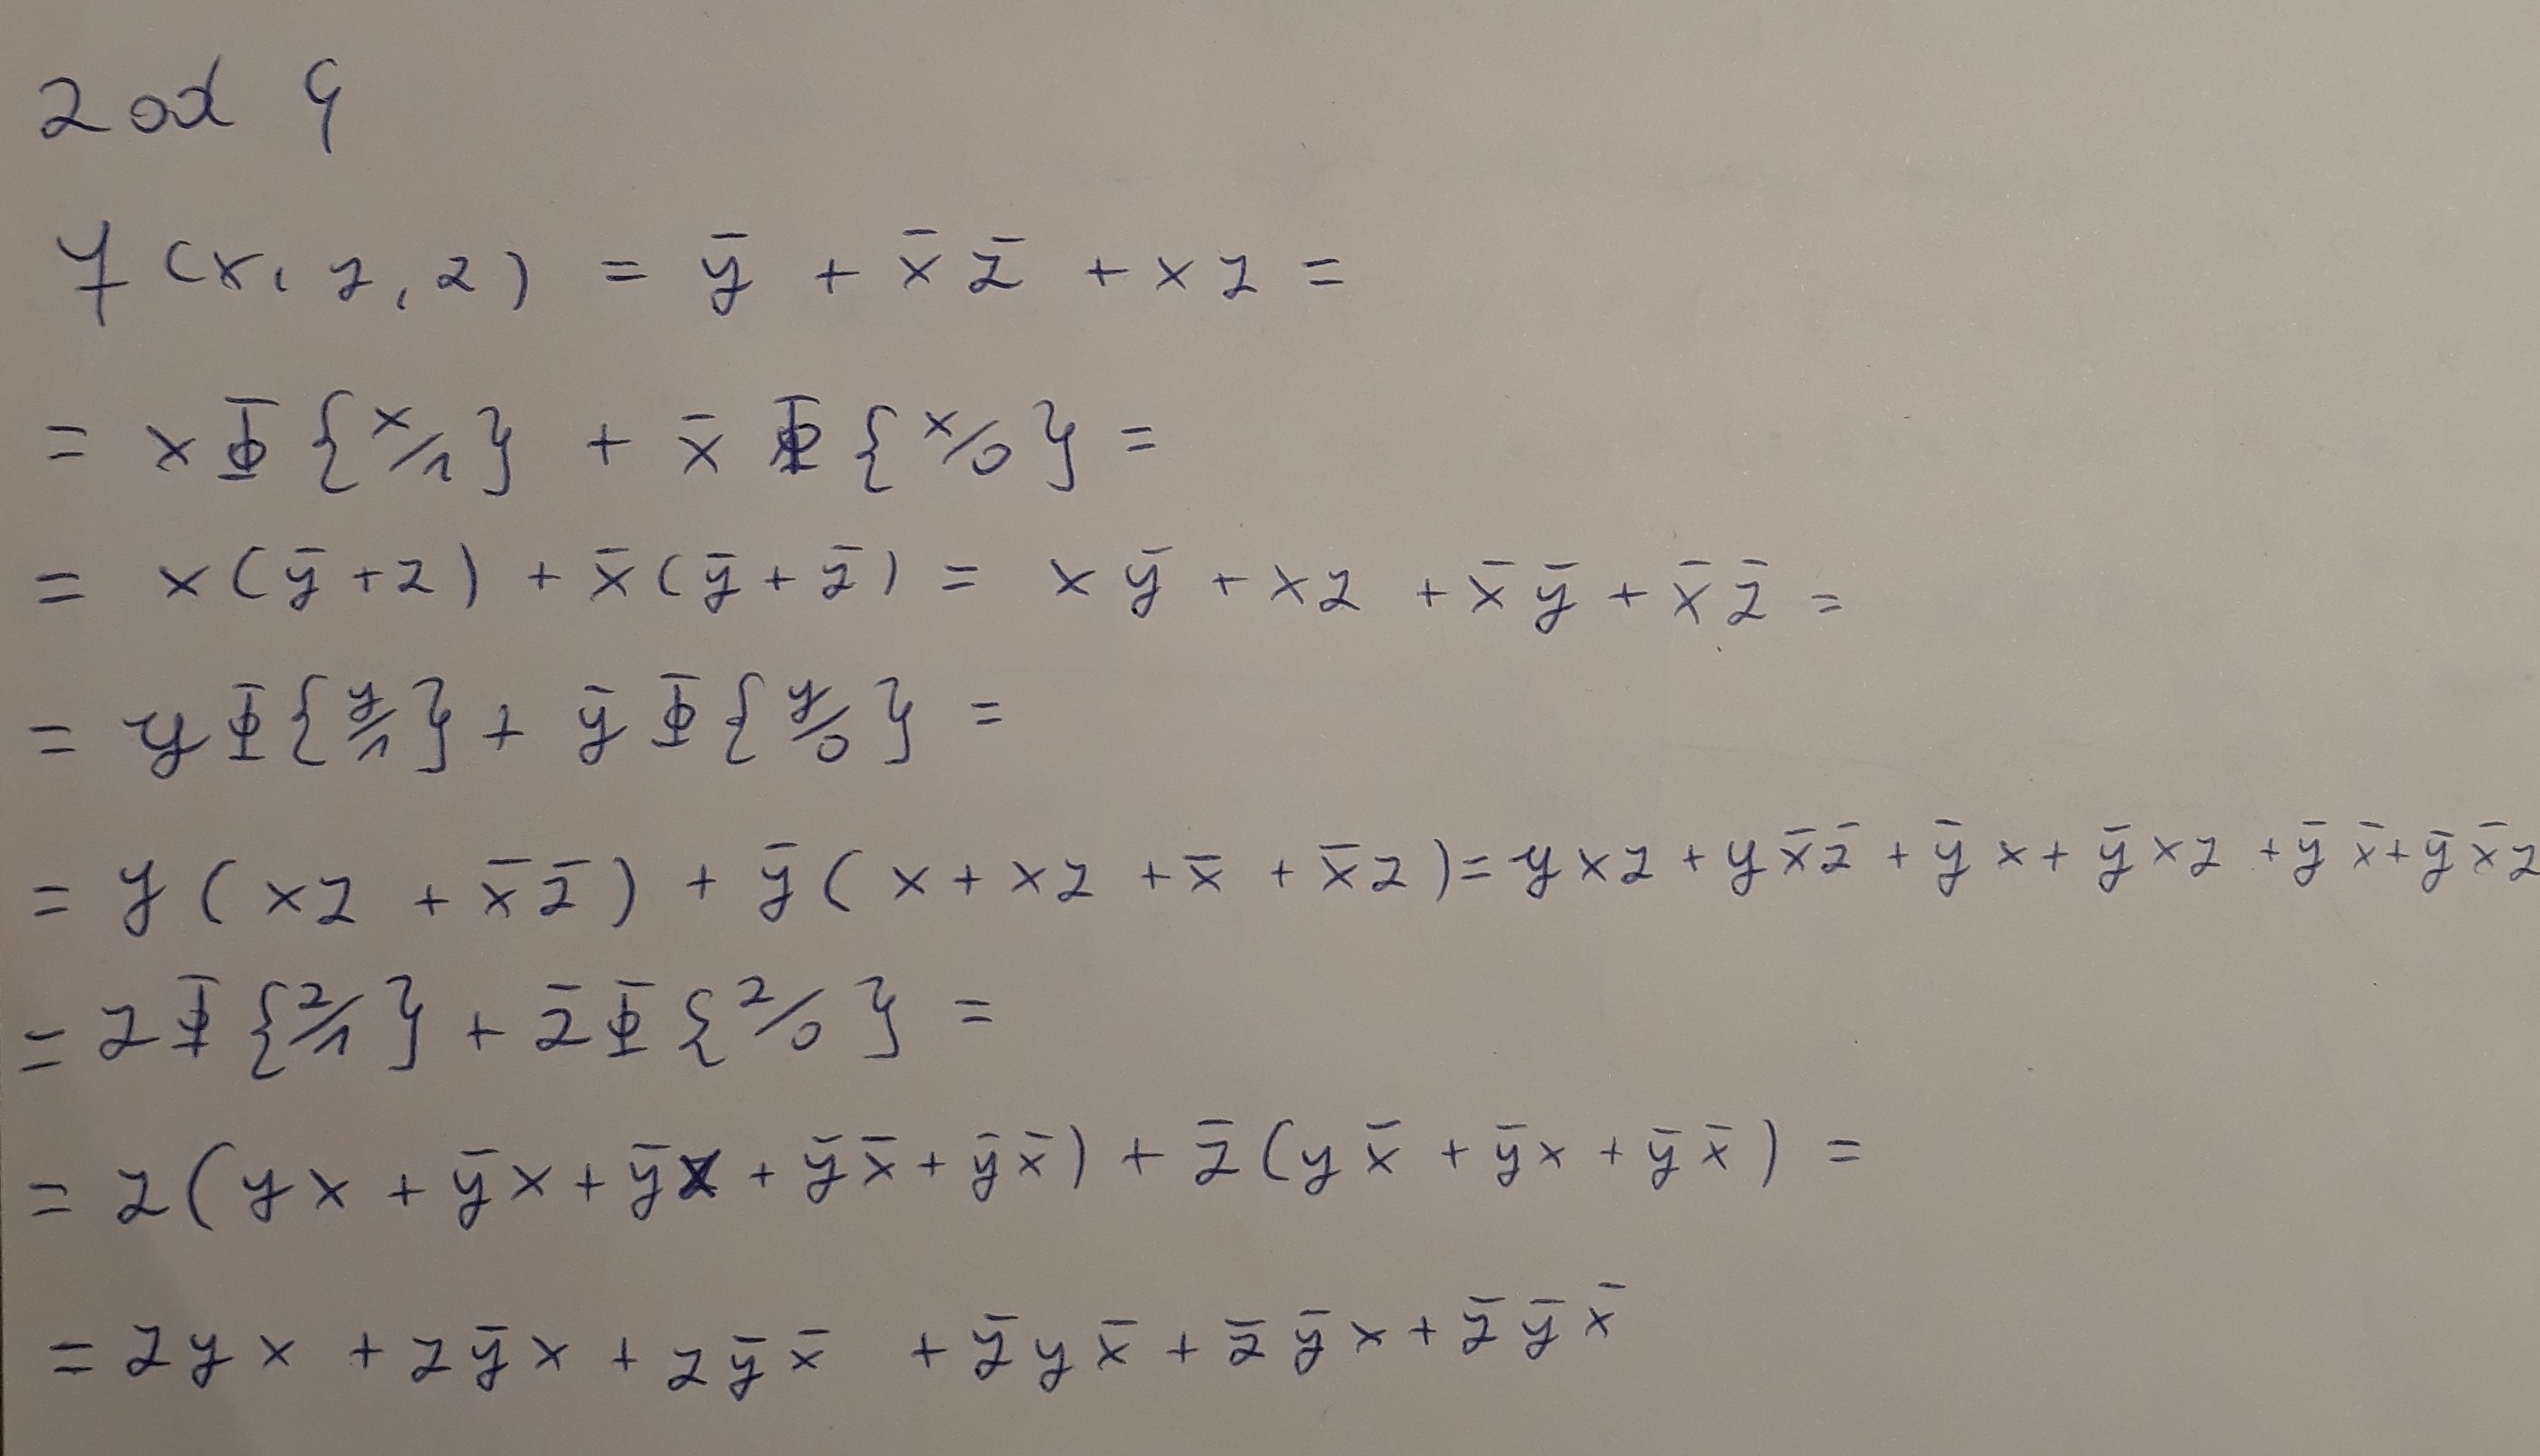 Zad 9
f(x, y, z) = ȳ + x̄ z̄ + xz =
= xΦ{x/1} + x̄ Φ{x/0} =
= x(ȳ+z) + x̄(ȳ+z̄) = xȳ + xz + x̄ȳ + x̄z̄ =
= yΦ{y/1} + ȳΦ{y/0} =
= y(xz + x̄z̄) + ȳ(x + xz + x̄ + x̄z) = yxz + yx̄z̄ + ȳx + ȳxz + ȳx̄ + ȳx̄z
= zΦ{z/1} + z̄Φ{z/0} =
= z(yx + ȳx + ȳx + ȳx̄ + ȳx̄) + z̄(yx̄ + ȳx + ȳx̄) =
= zyx + zȳx + zȳx̄ + z̄yx̄ + z̄ȳx + z̄ȳx̄